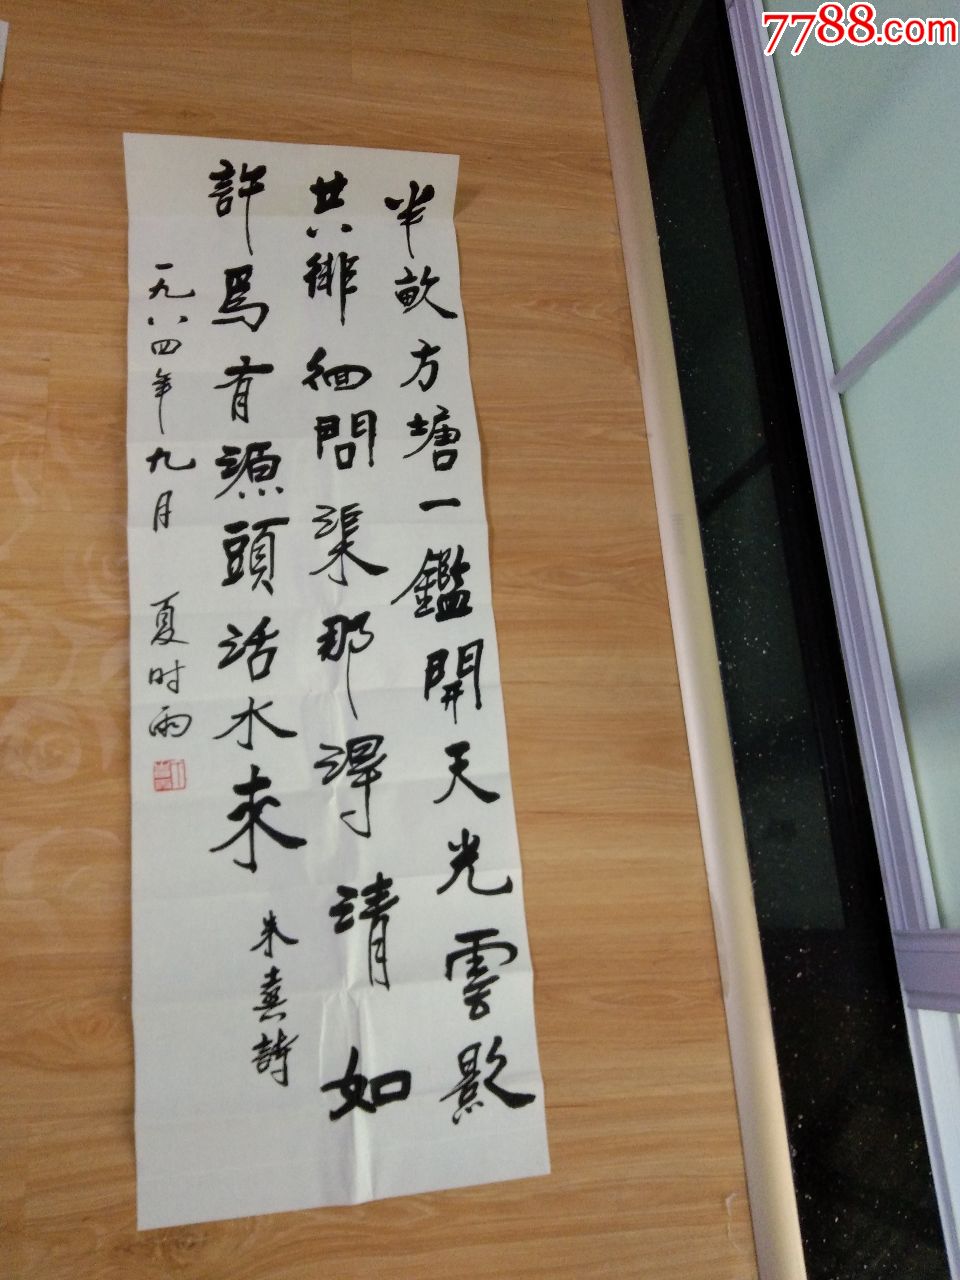 7788.com
半畝方塘一鑑開天光雲影
共徘徊問渠那得清如
許爲有源頭活水來
朱熹詩
一九八四年九月 夏时雨